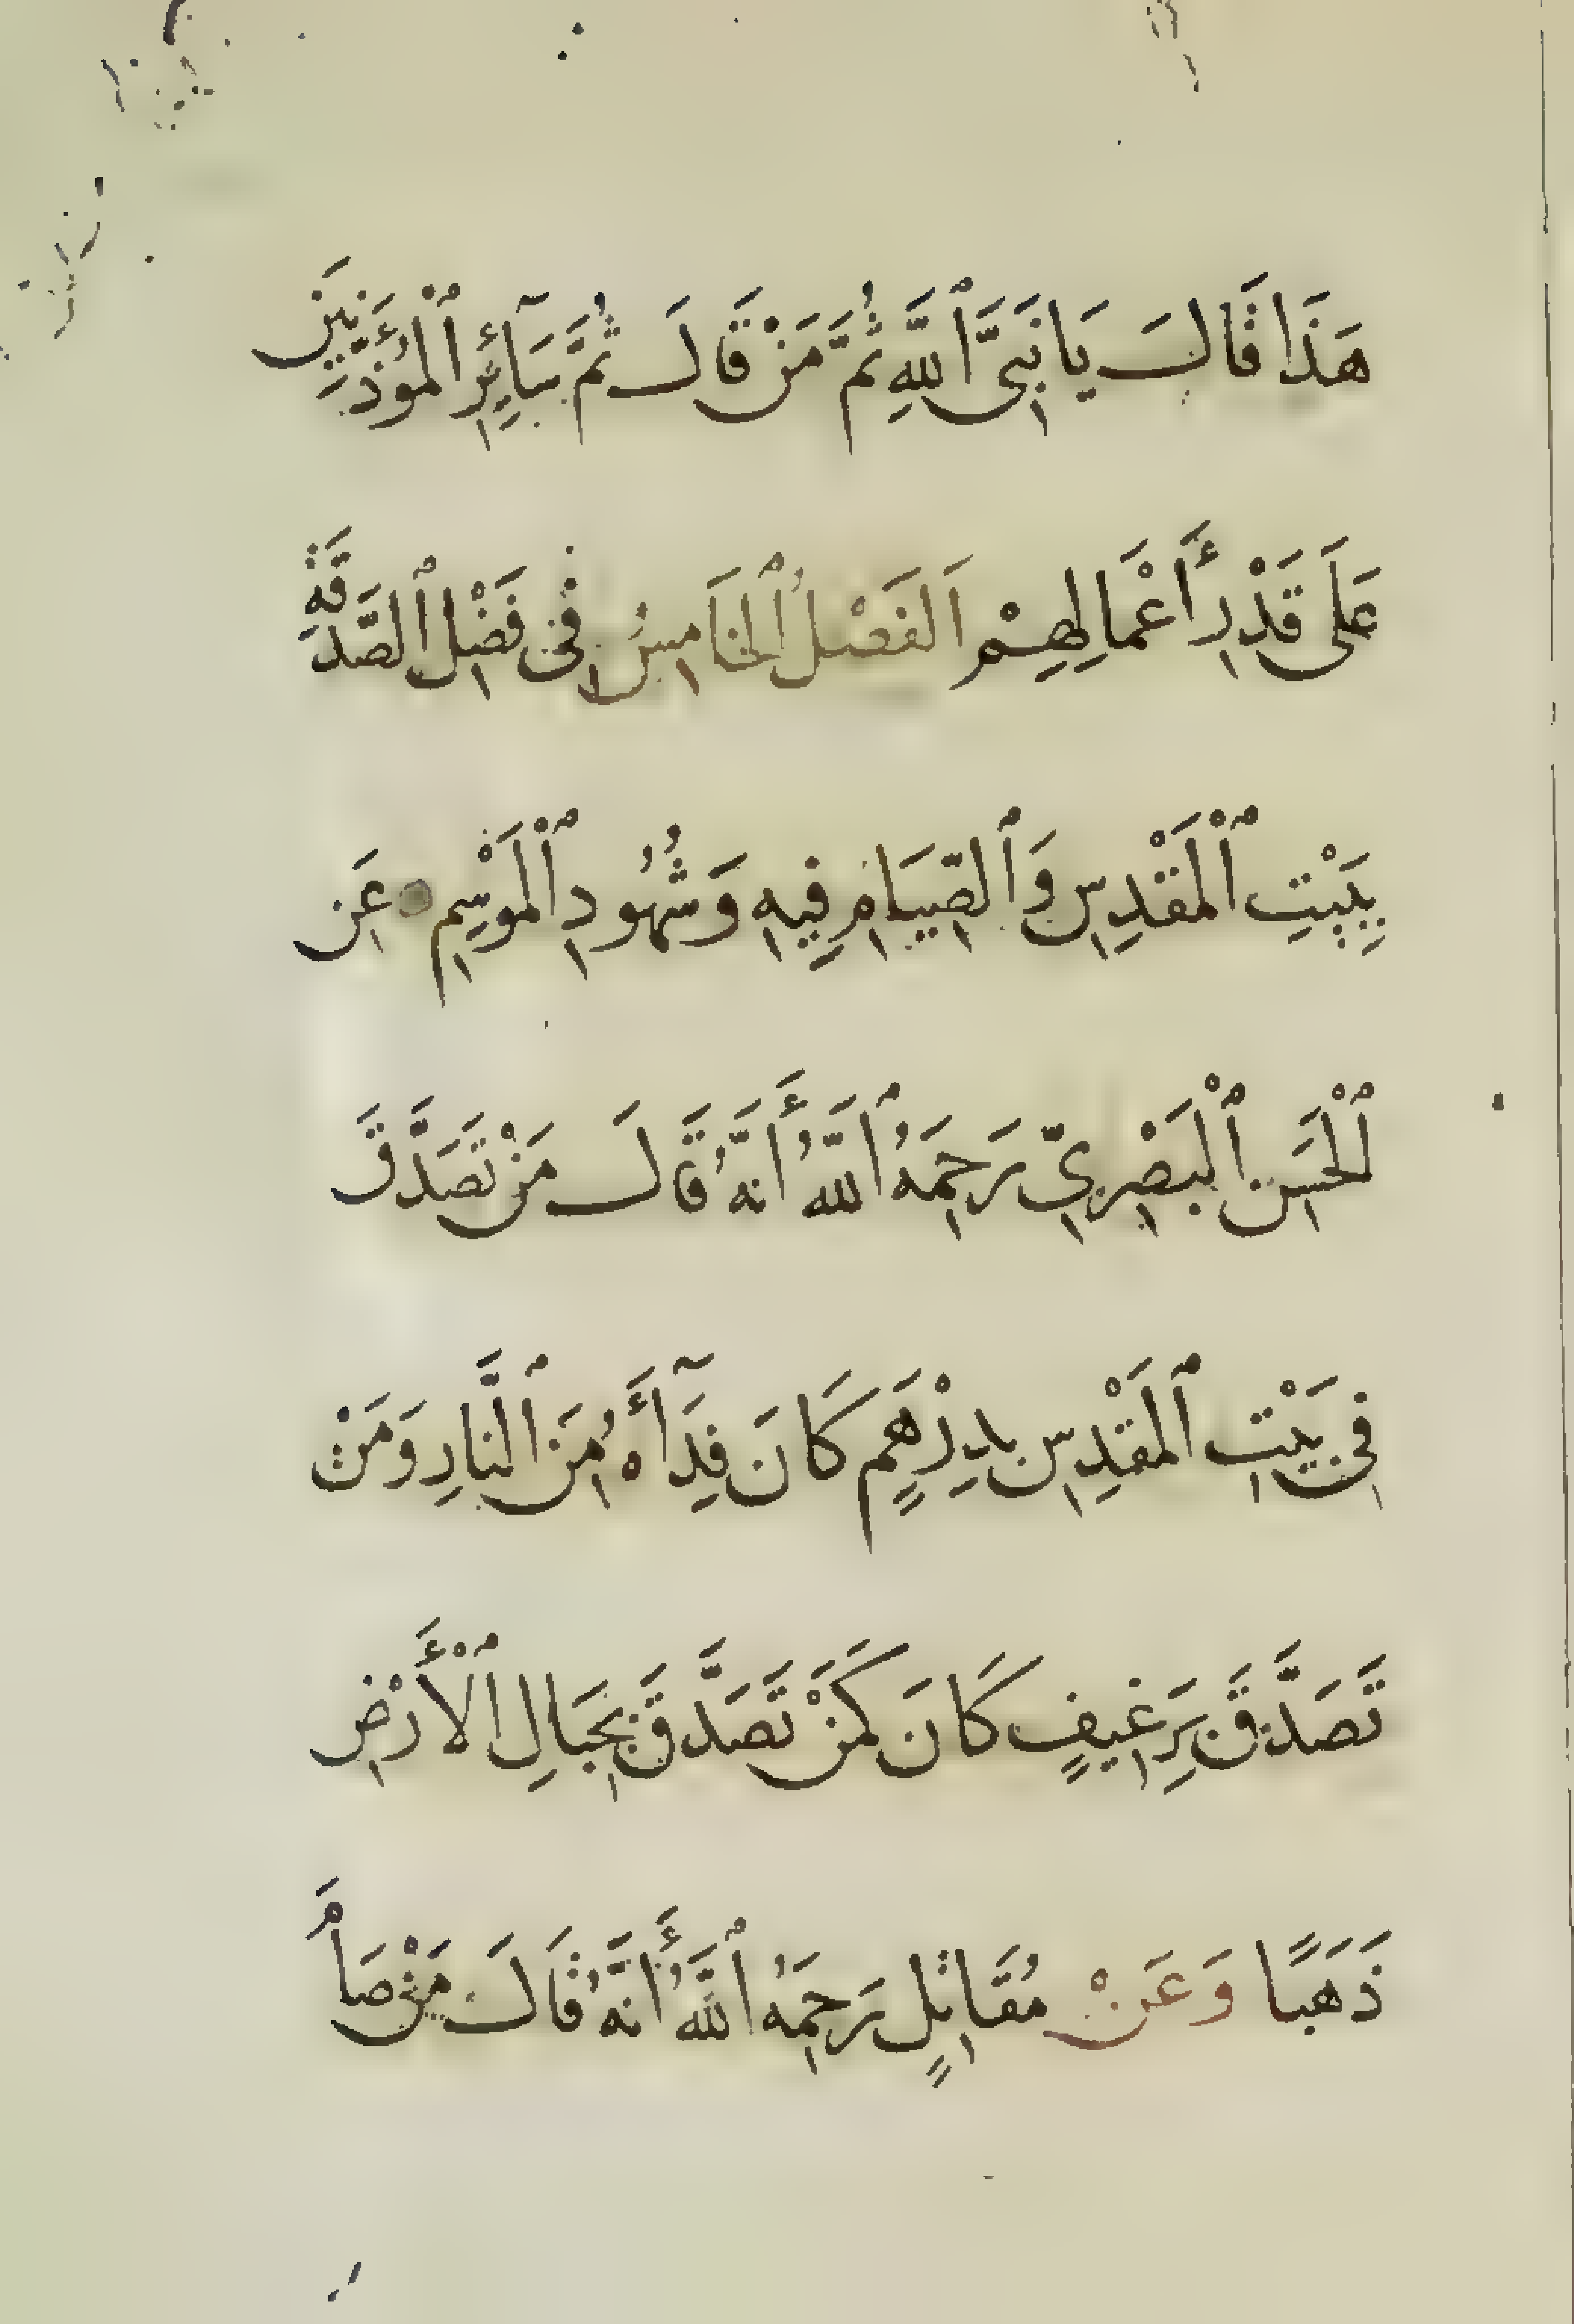 هَذَا قَالَ يَا نَبِيَّ ٱللَّهِ ثُمَّ مَنْ قَالَ ثُمَّ سَآئِرِ ٱلْمُؤَذِّنِينَ
عَلَى قَدْرِ أَعْمَالِهِمْ اَلفَصْلُ ٱلخَامِسُ فِي فَضْلِ ٱلصَّدَقَةِ
بِبَيْتِ ٱلْمَقْدِسِ وَٱلصِّيَامِ فِيهِ وَشُهُودِ ٱلْمَوْسِمِ عَنِ
ٱلْحَسَنِ ٱلْبَصْرِيِّ رَحِمَهُ ٱللَّهُ أَنَّهُ قَالَ مَنْ تَصَدَّقَ
فِي بَيْتِ ٱلمَقْدِسِ بِدِرْهَمٍ كَانَ فِدَآأَهُ مِنَ ٱلنَّارِ وَمَنْ
تَصَدَّقَ بِرَغِيفٍ كَانَ كَمَنْ تَصَدَّقَ بِجِبَالِ ٱلْأَرْضِ
ذَهَبًا وَعَنْ مُقَاتِلٍ رَحِمَهُ ٱللَّهُ أَنَّهُ قَالَ مَنْ صَامَ